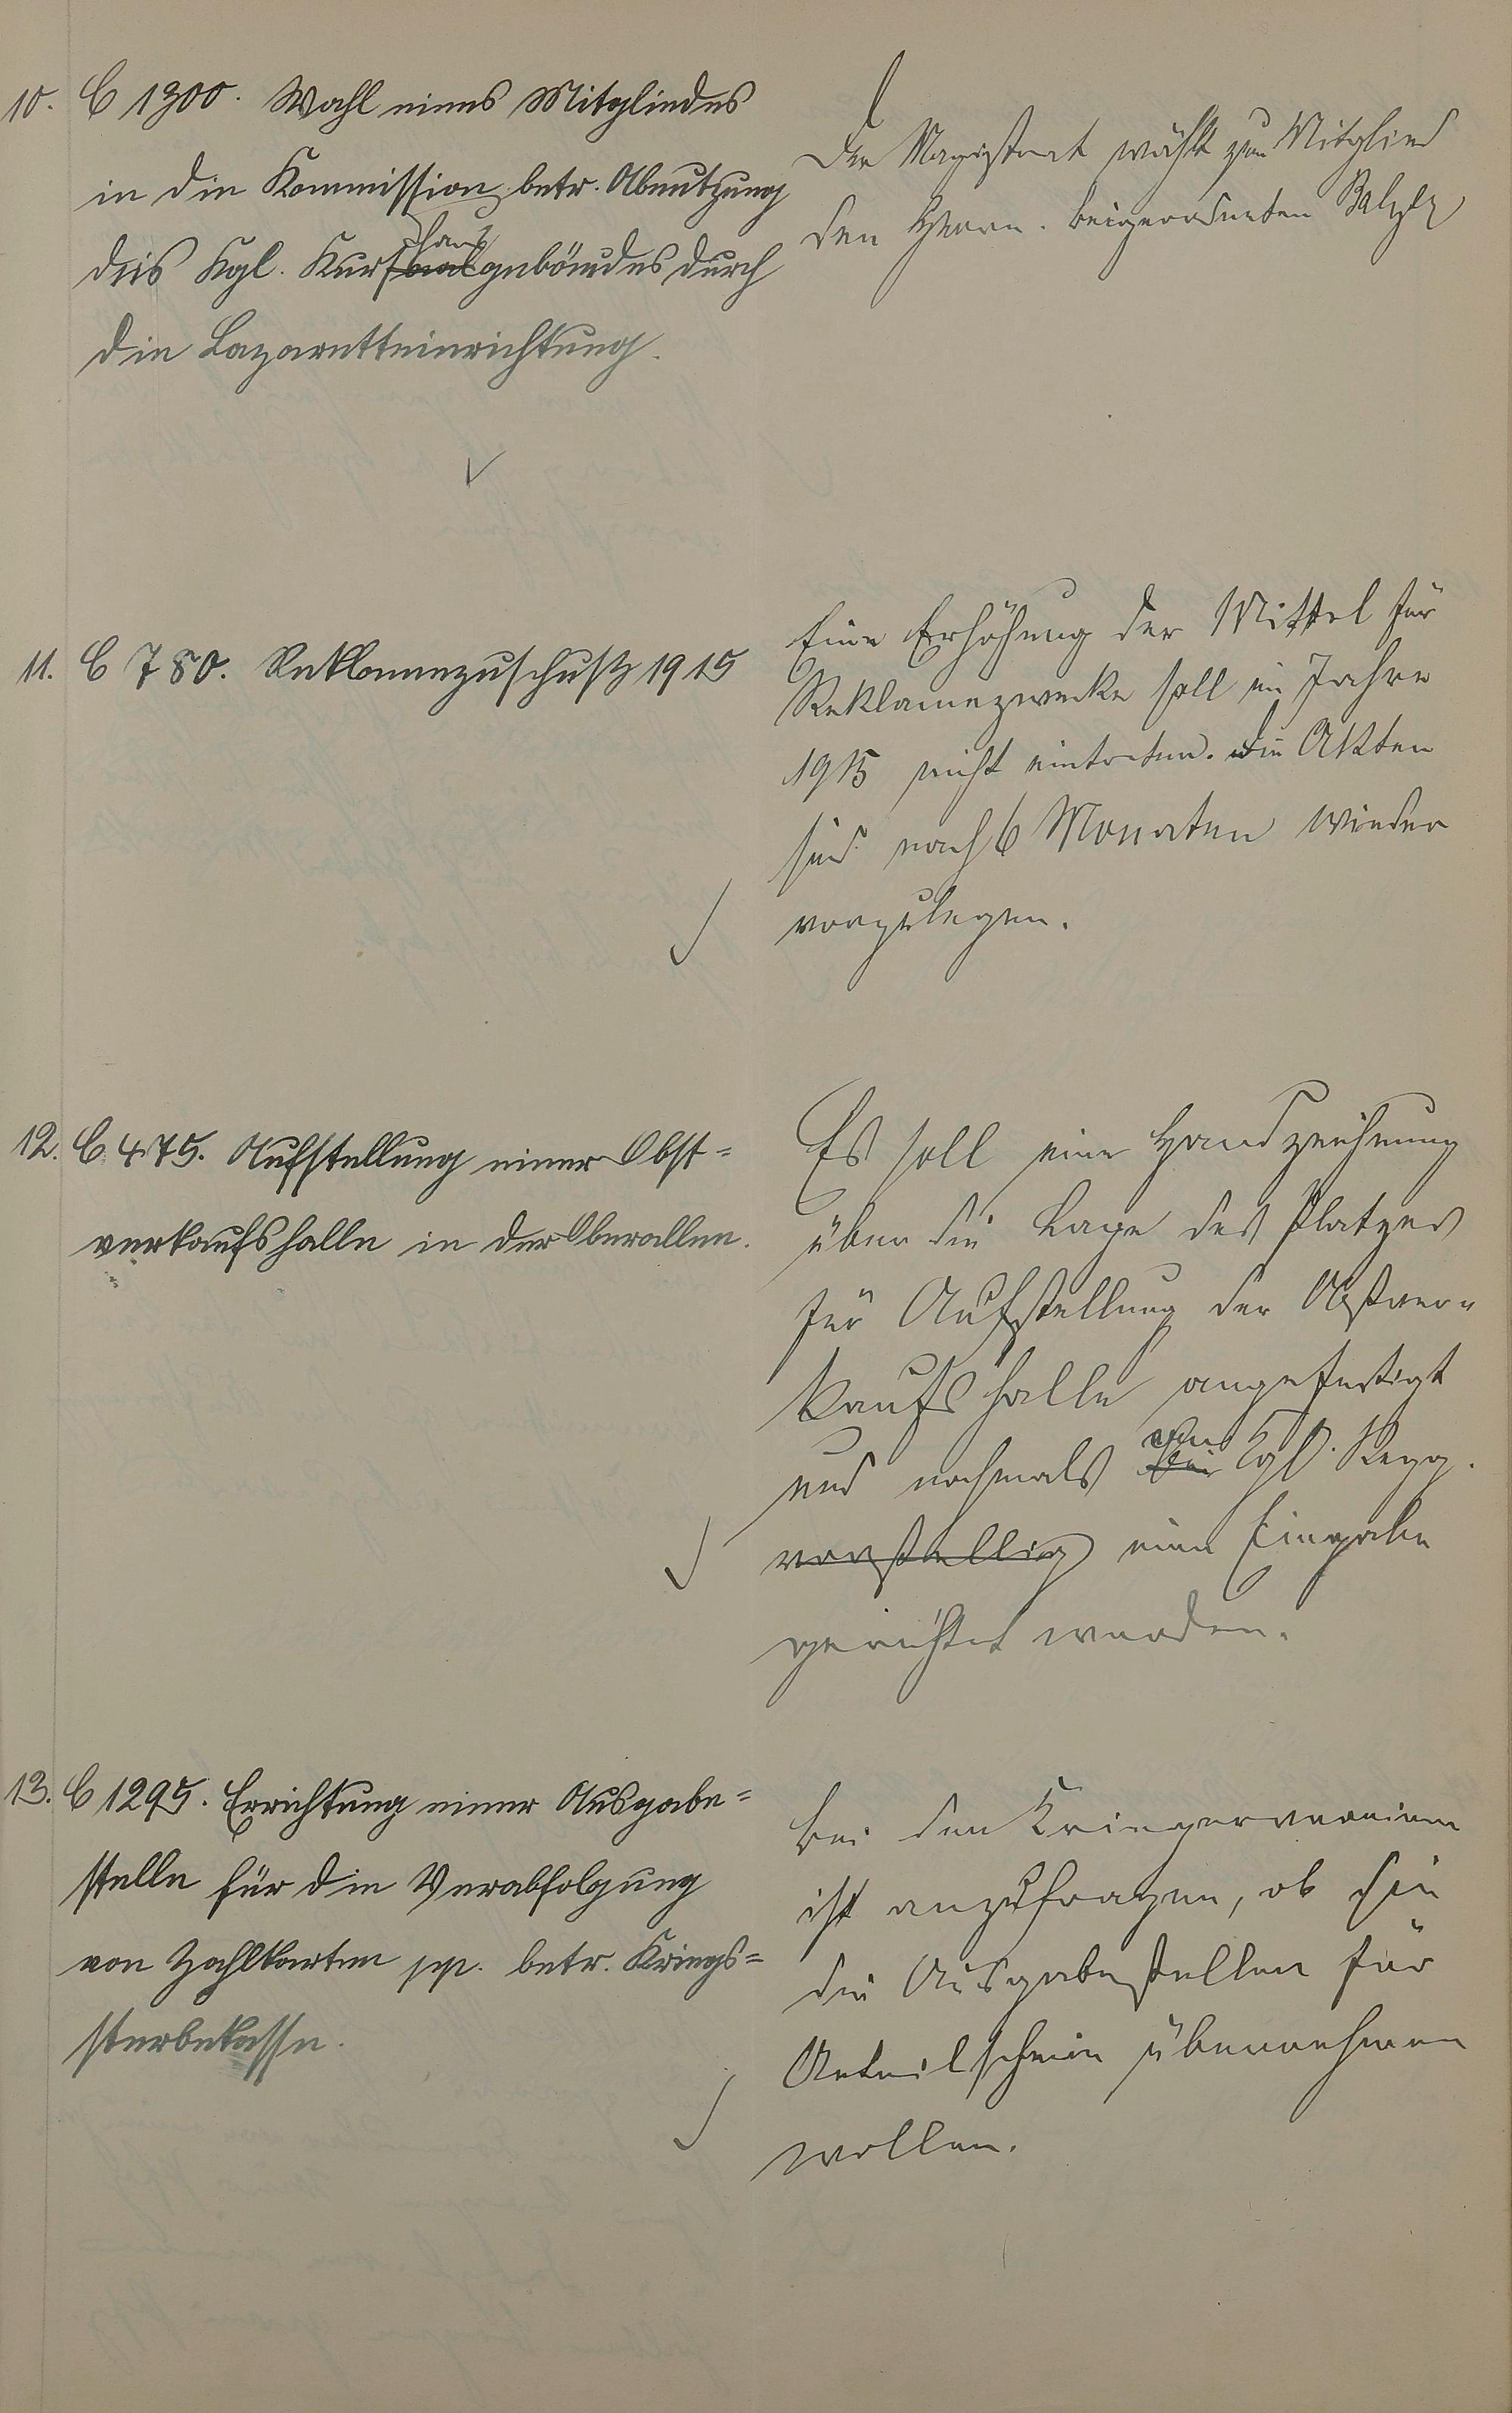 10. C 1300. Wahl eines Mitgliedes
in die Kommission betr. Abnutzung
des Kgl. Kurhausgebäudes durch
die Lazaretteinrichtung.
Der Magistrat wählt zum Mitglied
den Herrn Beigeordneten
11. C 780. Reklamezuschuß 1915
Eine Erhöhung der Mittel für
Reklamezwecke soll im Jahre
1915 nicht eintreten. Die Akten
sind nach 6 Monaten wieder
vorzulegen.
12. C 475. Aufstellung einer Obst-
verkaufshalle in der Oberallee.
Es soll eine Handzeichnung
über die Lage des Platzes
für Aufstellung der Obstver-
kaufshalle angefertigt
und nochmals an Kgl. Regg.
vorstellig eine Eingabe
gerichtet werden.
13. C 1295. Errichtung einer Ausgabe-
stelle für die Verabfolgung
von Zahlkarten pp. betr. Kriegs-
sterbekasse.
Bei den Kriegervereinen
ist anzufragen, ob sie
die Ausgabestellen für
Anteilscheine übernehmen
wollen.